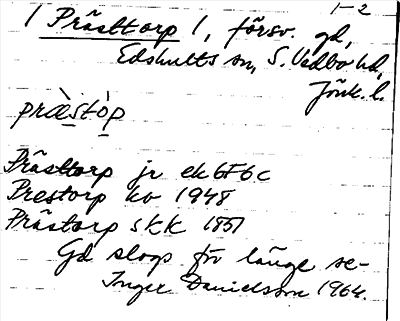 1-2
/ Prästtorp /, försv. gd,
Edshults sn, S. Vedbo hd,
Jönk. l.
præstòp
Prästtorp jr ek 6F6c
Prestorp hv 1948
Prästorp skk 1951
Gd slogs för länge se-
Inger Danielsson 1964.